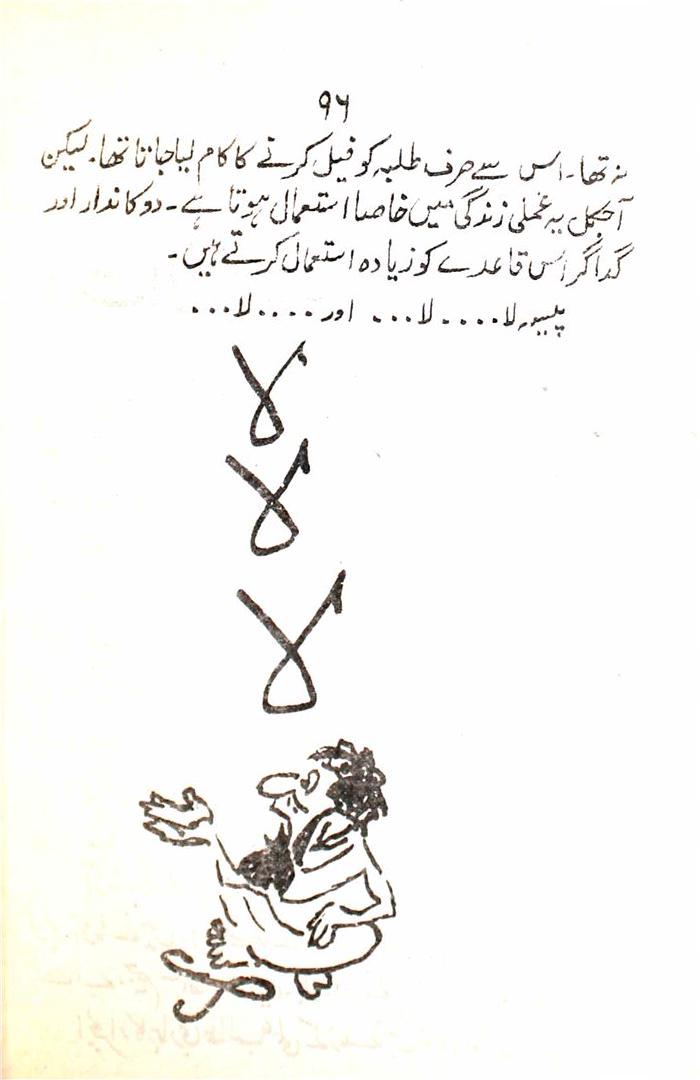 ۹۶
نہ تھا۔ اس سے صرف طلبہ کو فیل کرنے کا کام لیا جاتا تھا۔ لیکن
آجکل یہ عملی زندگی میں خاصا استعمال ہوتا ہے۔ دوکاندار اور
گداگر اسی قاعدے کو زیادہ استعمال کرتے ہیں۔
پیسہ لا.... لا... اور .... لا...
لا
لا
لا